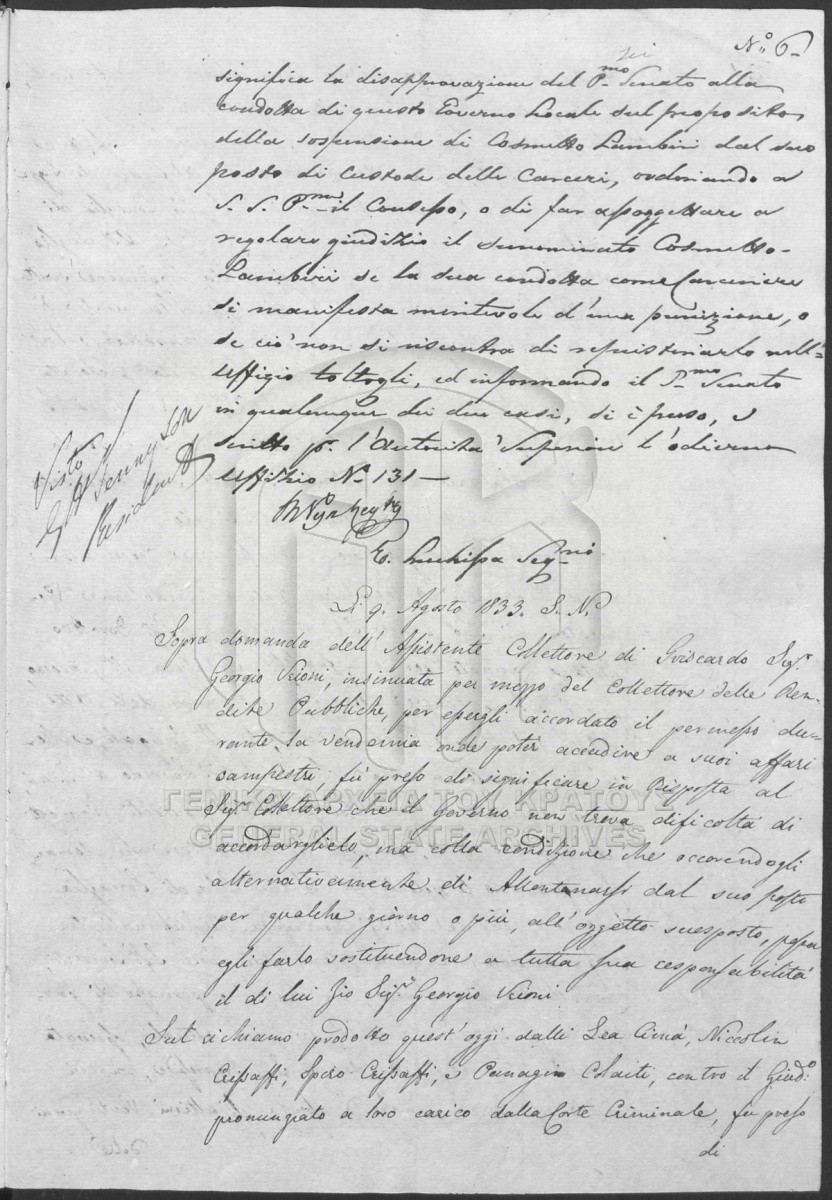 N.º 6
sei
significa la disapprovazione del P.mo Senato alla
condotta di questo Governo Locale sul proposito
della sospensione di Cosmetto Lambiri dal suo
posto di Custode delle Carceri, ordinando a
S. S. P.mo il Consesso, o di far assoggettare a
regolare giudizio il sunominato Cosmetto
Lambiri se la sua condotta come Carceriere
si manifesta meritevole d'una punizione, o
se ciò non si riscontra di ripristinarlo nell'
Uffizio toltogli, ed informando il P.mo Senato
in qualunque dei due casi, si è preso, e
scritto p. l'Autorità Superiore l'odierno
Uffizio N.º 131 —
Visto
Tennyson
Resident
Seg.rio
Li 9. Agosto 1833. S. N.
Sopra domanda dell'Assistente Collettore di Guiscardo Sig.r
Georgio insinuata per mezzo del Collettore delle Ren-
dite Pubbliche, per essergli accordato il permesso du-
rante la vendemia onde poter accudire a suoi affari
campestri, fù preso di significare in risposta al
Sig.r Collettore che il Governo non trova dificoltà di
accordarglielo, ma colla condizione che occorendogli
alternativamente di Allontanarsi dal suo posto
per qualche giorno o più, all'oggetto suesposto, possa
egli farlo sostituendone a tutta sua responsabilità
il di lui Zio Sig.r Georgio
Sul richiamo prodotto quest'oggi dalli Niccolin
Crissaffi, Spiro Crissaffi, e Panagin contro il Giud.o
pronunziato a loro carico dalla Corte Criminale, fu preso
di
ΓΕΝΙΚΑ ΑΡΧΕΙΑ ΤΟΥ ΚΡΑΤΟΥΣ
GENERAL STATE ARCHIVES